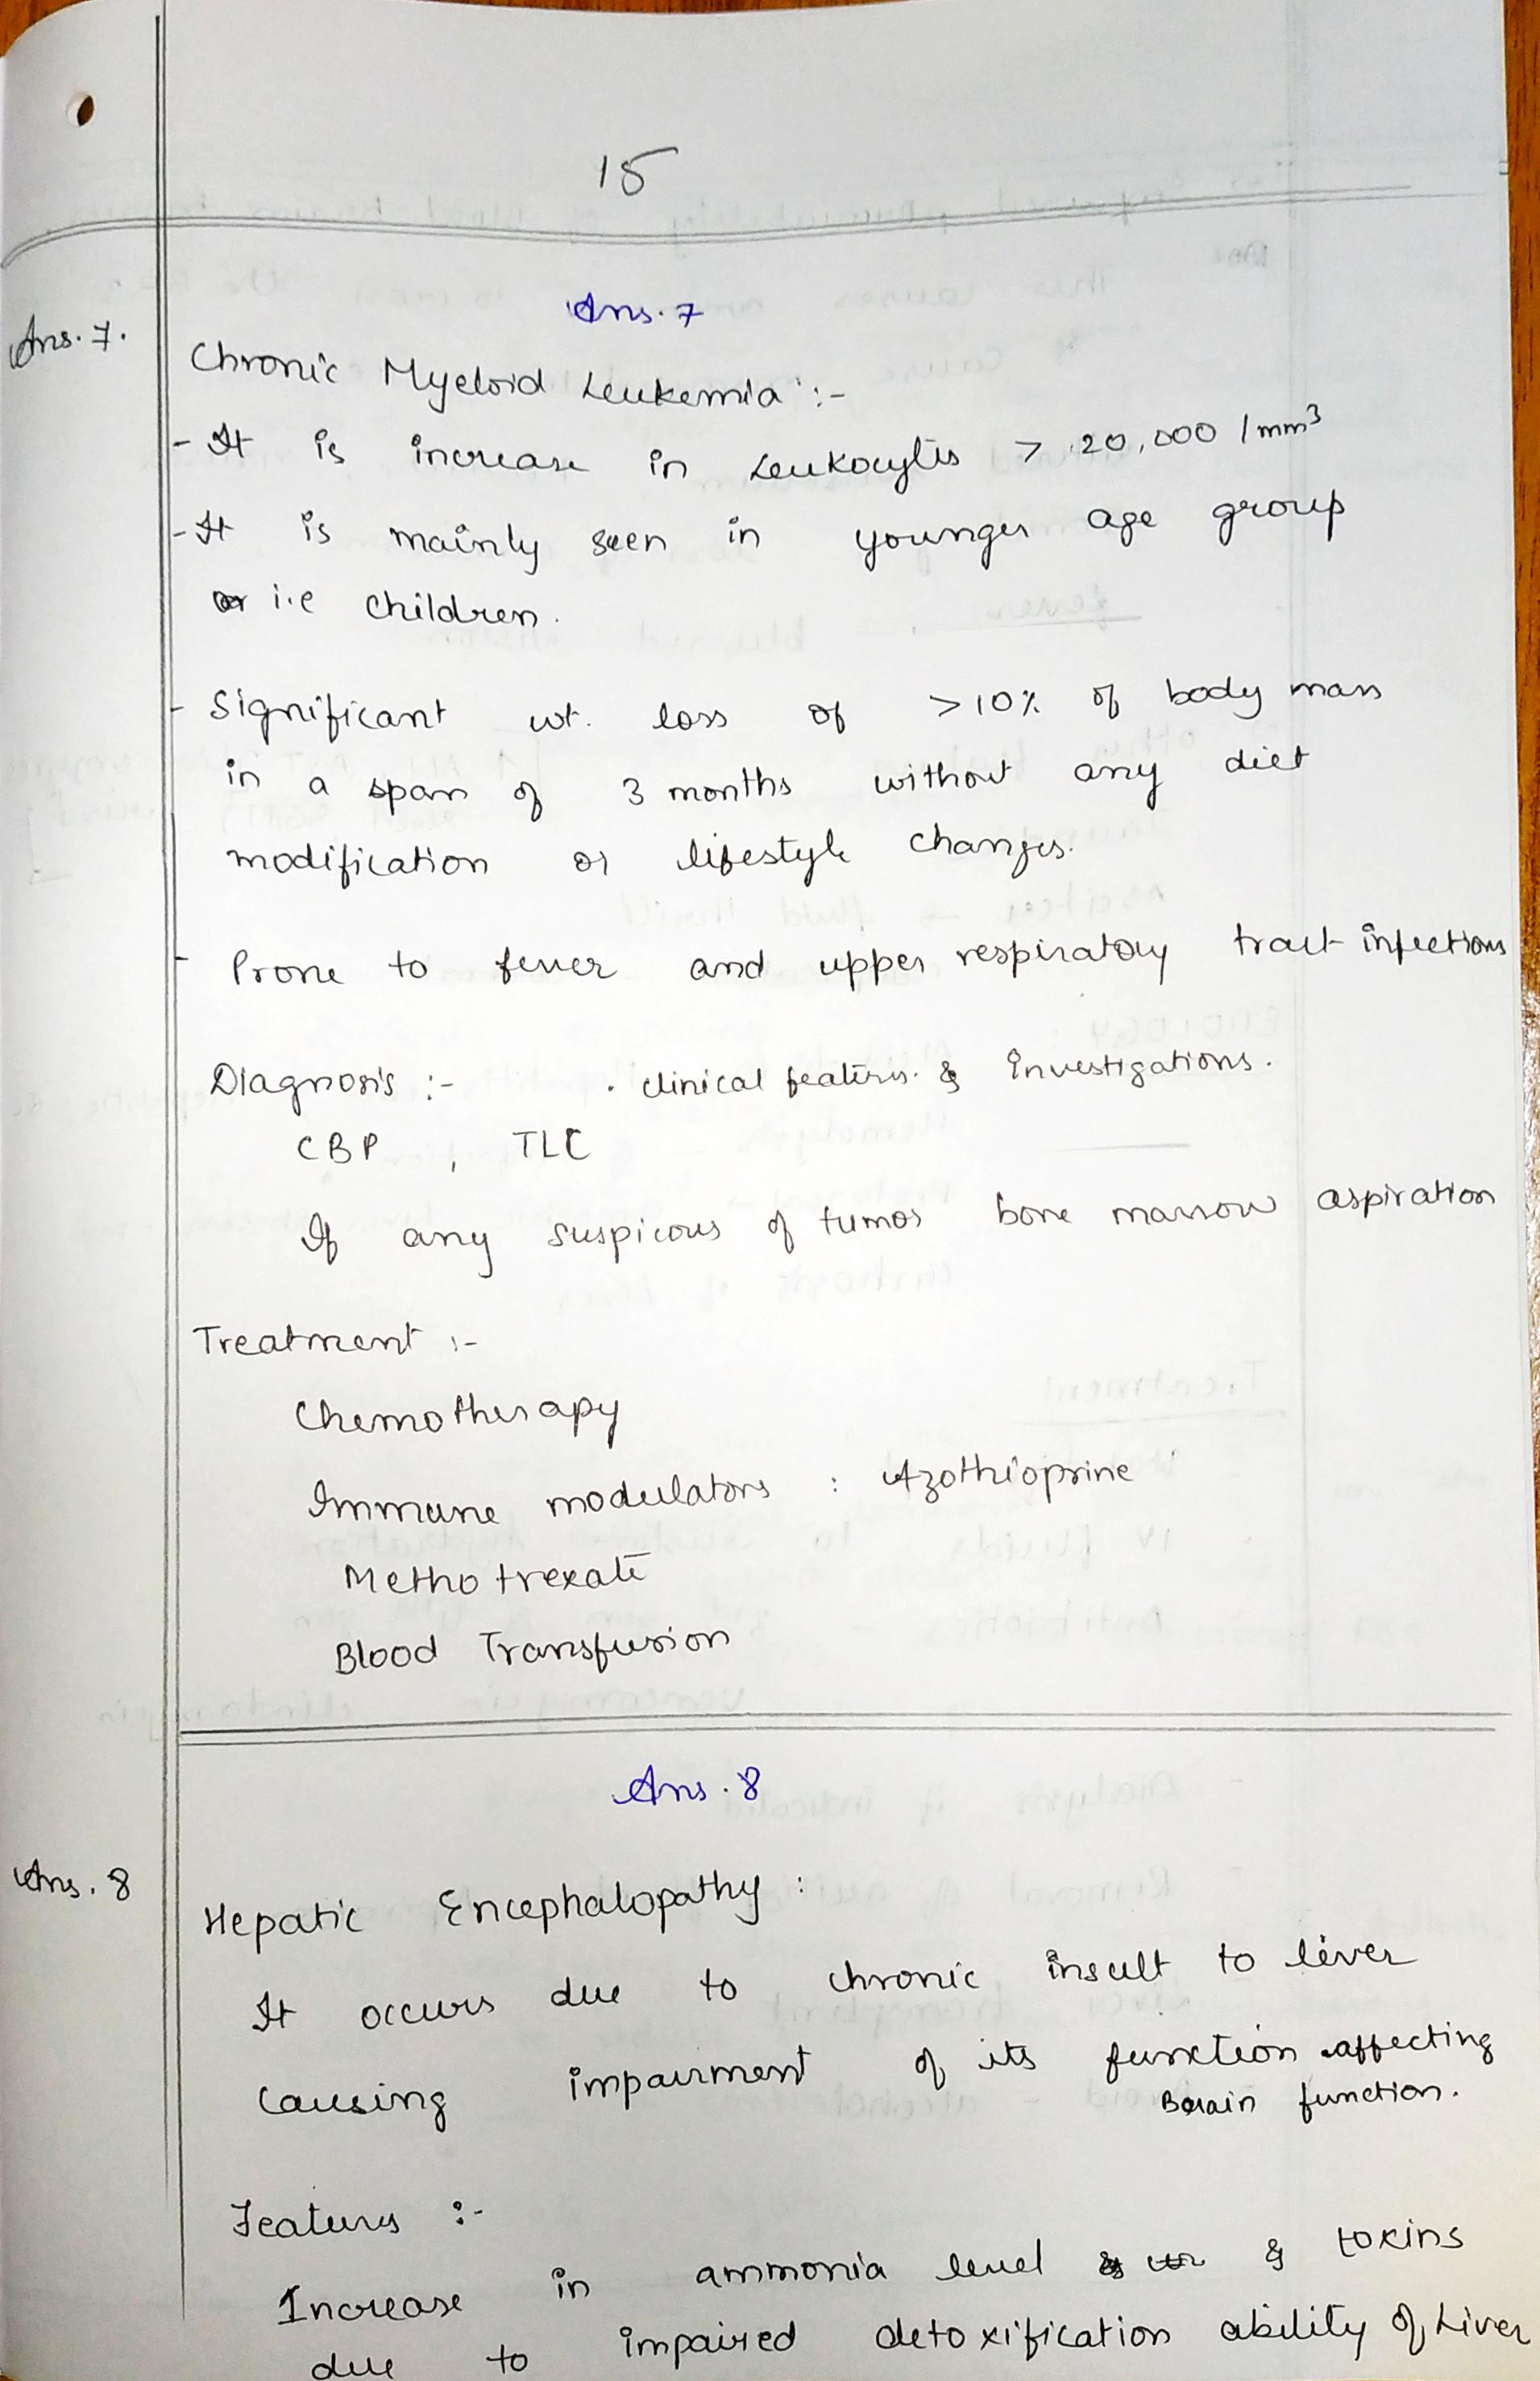 15
Ans. 7
Ans. 7.
Chronic Myeloid Leukemia :-
- It is increase in Leukocytes > 20,000 / mm³
- It is mainly seen in younger age group
or i.e children.
- Significant wt. loss of >10% of body mass
in a span of 3 months without any diet
modification or lifestyle changes.
- Prone to fever and upper respiratory tract infections
Diagnosis :- . clinical features & Investigations.
CBP , TLC
If any suspicous of tumor bone marrow aspiration
Treatment :-
Chemotherapy
Immune modulators : Azothioprine
Methotrexate
Blood Transfusion
Ans. 8
Ans. 8
Hepatic Encephalopathy :
It occurs due to chronic insult to liver
causing impairment of its function affecting
Brain function.
Features :-
Increase in ammonia level & toxins
due to impaired detoxification ability of Liver